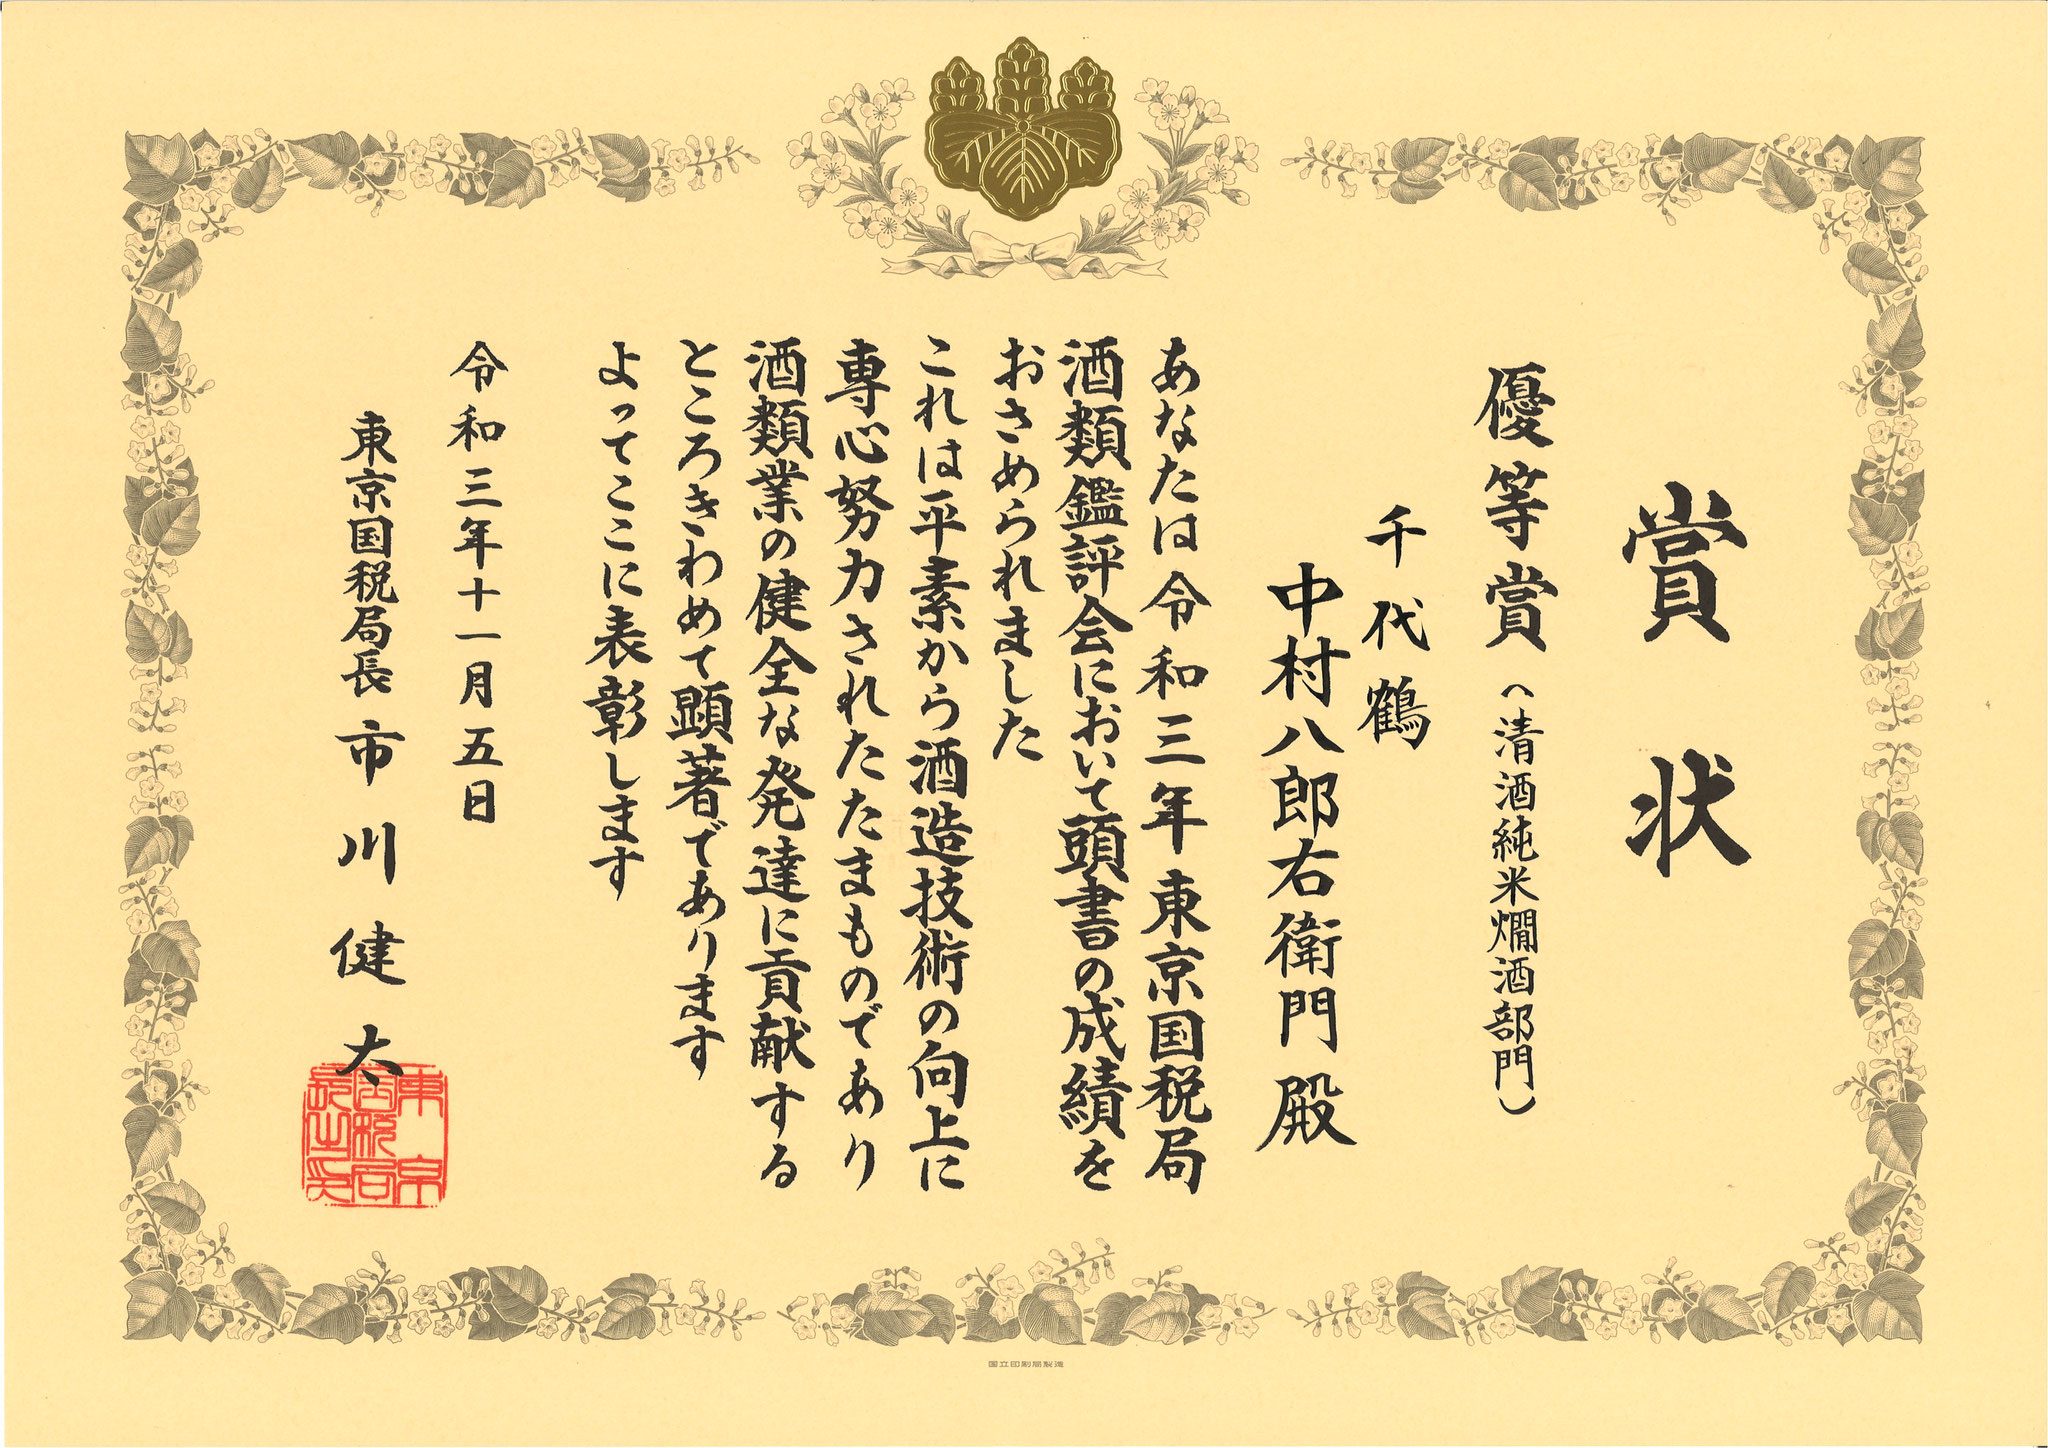 賞状
優等賞（清酒純米燗酒部門）
千代鶴
中村八郎右衛門殿
あなたは令和三年東京国税局
酒類鑑評会において頭書の成績を
おさめられました
これは平素から酒造技術の向上に
専心努力されたたまものであり
酒類業の健全な発達に貢献する
ところきわめて顕著であります
よってここに表彰します
令和三年十一月五日
東京国税局長 市川健太
東京
国税局
長之印
国立印刷局製造